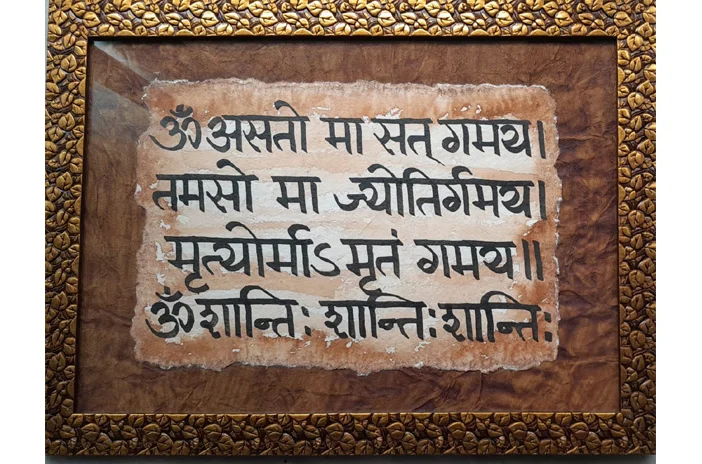 ॐ असतो मा सत् गमय।
तमसो मा ज्योतिर्गमय।
मृत्योर्माऽ मृतं गमय॥
ॐ शान्ति: शान्ति: शान्ति: